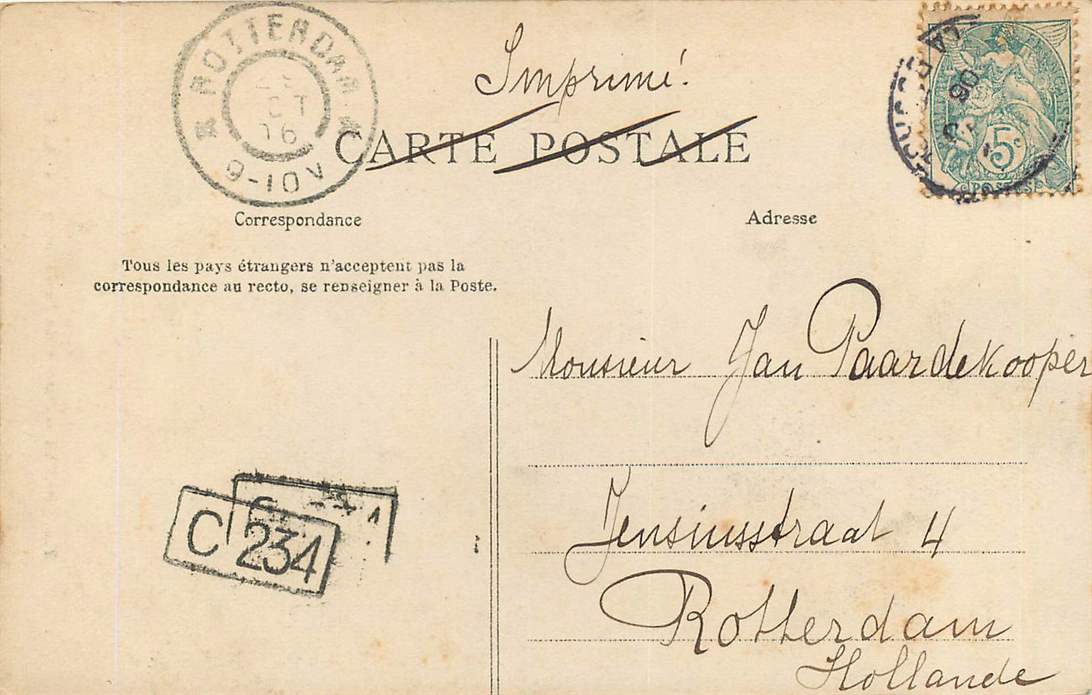 ROTTERDAM
16
9-10V
Imprimé.
CARTE POSTALE
5c
POSTES
06
Correspondance
Adresse
Tous les pays étrangers n'acceptent pas la
correspondance au recto, se renseigner à la Poste.
Monsieur Jan Paardekooper
Jensiusstraat 4
Rotterdam
Hollande
C 234